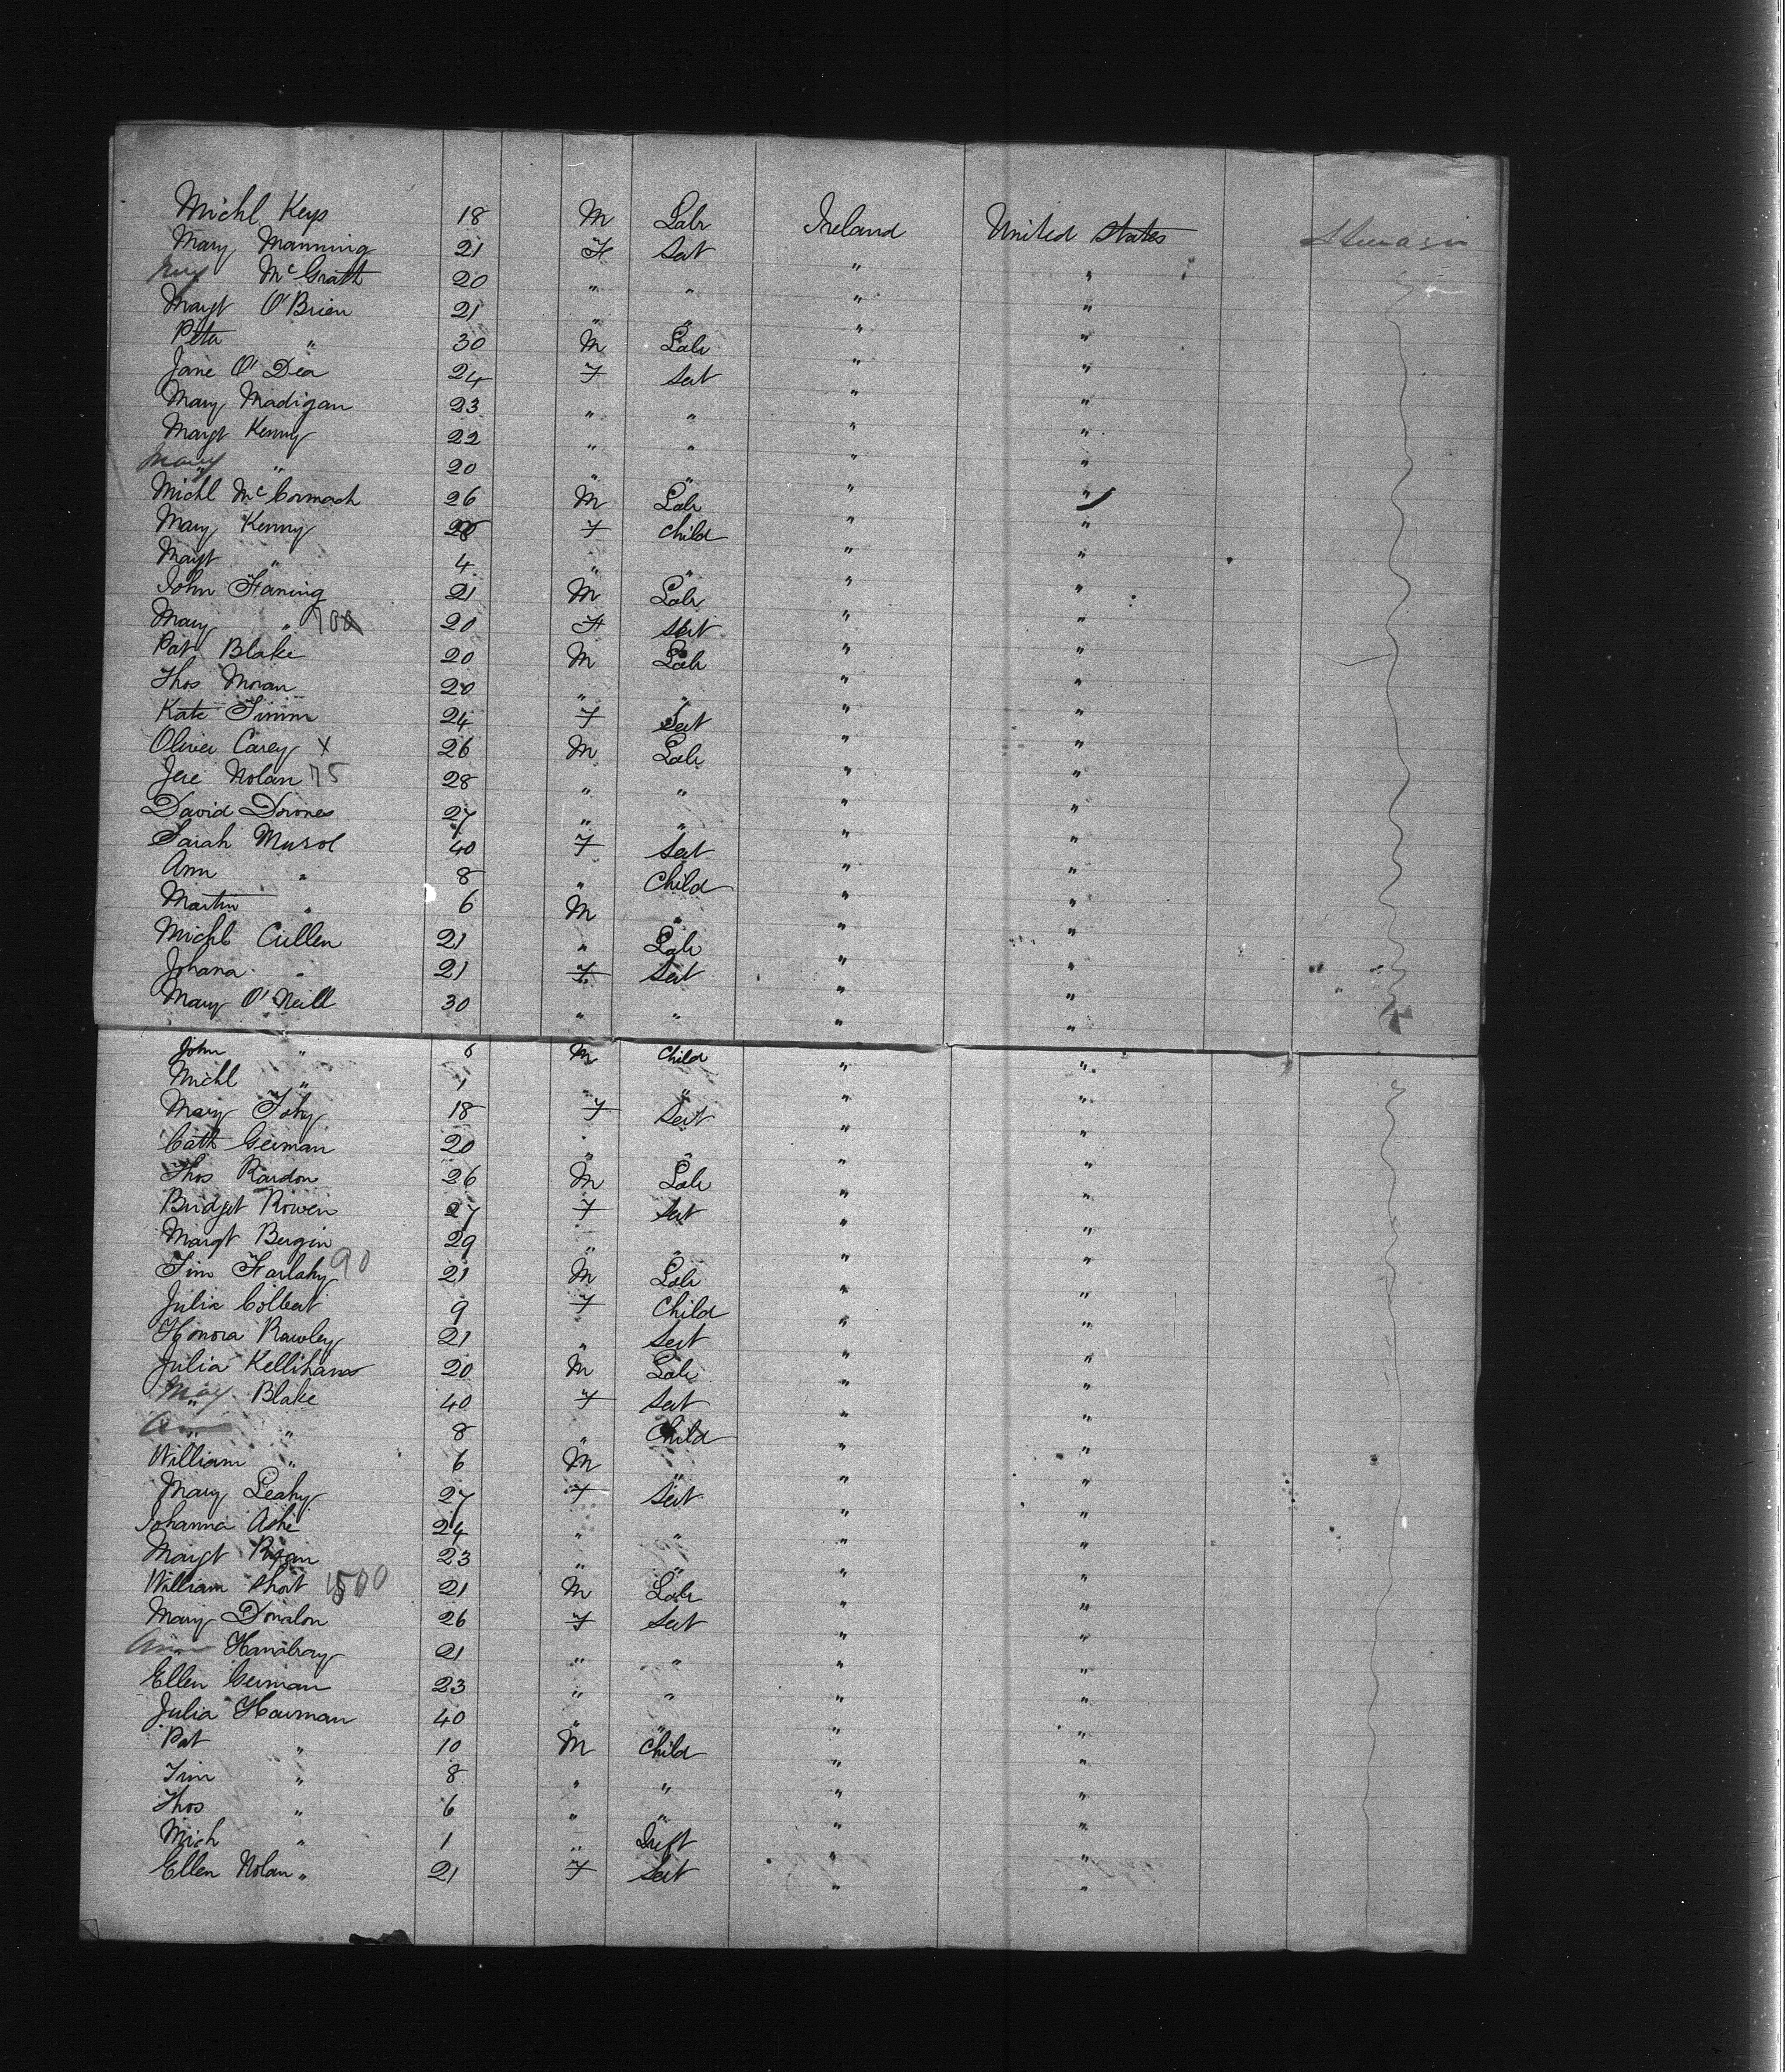 Michl Keys 18 M Labr Ireland United States
Mary Manning 21 F Sevt " "
Mary McGrath 20 " " " "
Margt O'Brien 21 " " " "
Peter " 30 M Labr " "
Jane O'Dea 24 F Sevt " "
Mary Madigan 23 " " " "
Margt Kenny 22 " " " "
Mary " 20 " " " "
Michl McCormack 26 M Labr " "
Mary Kenny F Child " "
Margt " 4 " " " "
John Faning 21 M Labr " "
Mary " 20 F Sevt " "
Pat Blake 20 M Labr " "
Thos Moran 20 " " " "
Kate Timm 24 F Sevt " "
Oliver Carey x 26 M Labr " "
Jere Nolan 75 28 " " " "
David 27 " " " "
Sarah 40 F Sevt " "
Ann " 8 " Child " "
Martin " 6 M " " "
Michl Cullen 21 " Labr " "
Johana " 21 F Sevt " "
Mary O'Neill 30 " " " "
John " 6 M Child " "
Michl " 1 " " " "
Mary 18 F Sevt " "
Cath German 20 " " " "
Thos Rardon 26 M Labr " "
Bridget Rowen 27 F Sevt " "
Margt Bergin 29 " " " "
Tim Farlahy 90 21 M Labr " "
Julia Colbert 9 F Child " "
Honora Rawley 21 " Sevt " "
Julia Kellihan 20 M Labr " "
May Blake 40 F Sevt " "
Ann " 8 " Child " "
William " 6 M " " "
Mary Leahy 27 F Sevt " "
Johanna Ashe 24 " " " "
Margt Ryan 23 " " " "
William Short 500 21 M Labr " "
Mary Donalon 26 F Sevt " "
Ann Hanabray 21 " " " "
Ellen German 23 " " " "
Julia Hourman 40 " " " "
Pat " 10 M Child " "
Tim " 8 " " " "
Thos " 6 " " " "
Mich " 1 " Inft " "
Ellen Nolan " 21 F Sevt " "